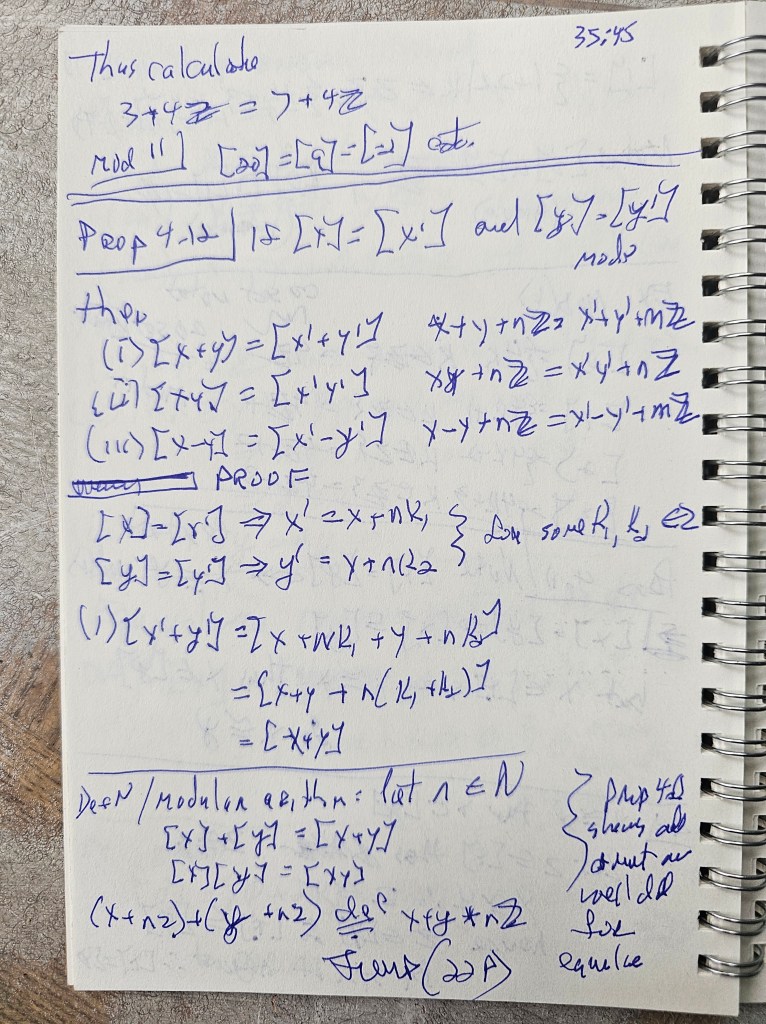 35:45
Thus calculate
3+4ℤ = 7+4ℤ
mod 11] [20] = [9] = [-2] etc.
Prop 4.12 | If [x] = [x'] and [y] = [y']
mod n
then
(i) [x+y] = [x'+y'] x+y+nℤ = x'+y'+nℤ
(ii) [xy] = [x'y'] xy+nℤ = x'y'+nℤ
(iii) [x-y] = [x'-y'] x-y+nℤ = x'-y'+nℤ
PROOF
[x] = [x'] ⇒ x' = x+nk₁ } for some k₁, k₂ ∈ Z
[y] = [y'] ⇒ y' = y+nk₂
(1) [x'+y'] = [x+nk₁+y+nk₂]
= [x+y+n(k₁+k₂)]
= [x+y]
Defn / modular arithm: let n ∈ N
[x]+[y] = [x+y]
[x][y] = [xy]
(x+nz)+(y+nz) def x+y+nℤ
(22A)
prop 4.12
shows all
well
for